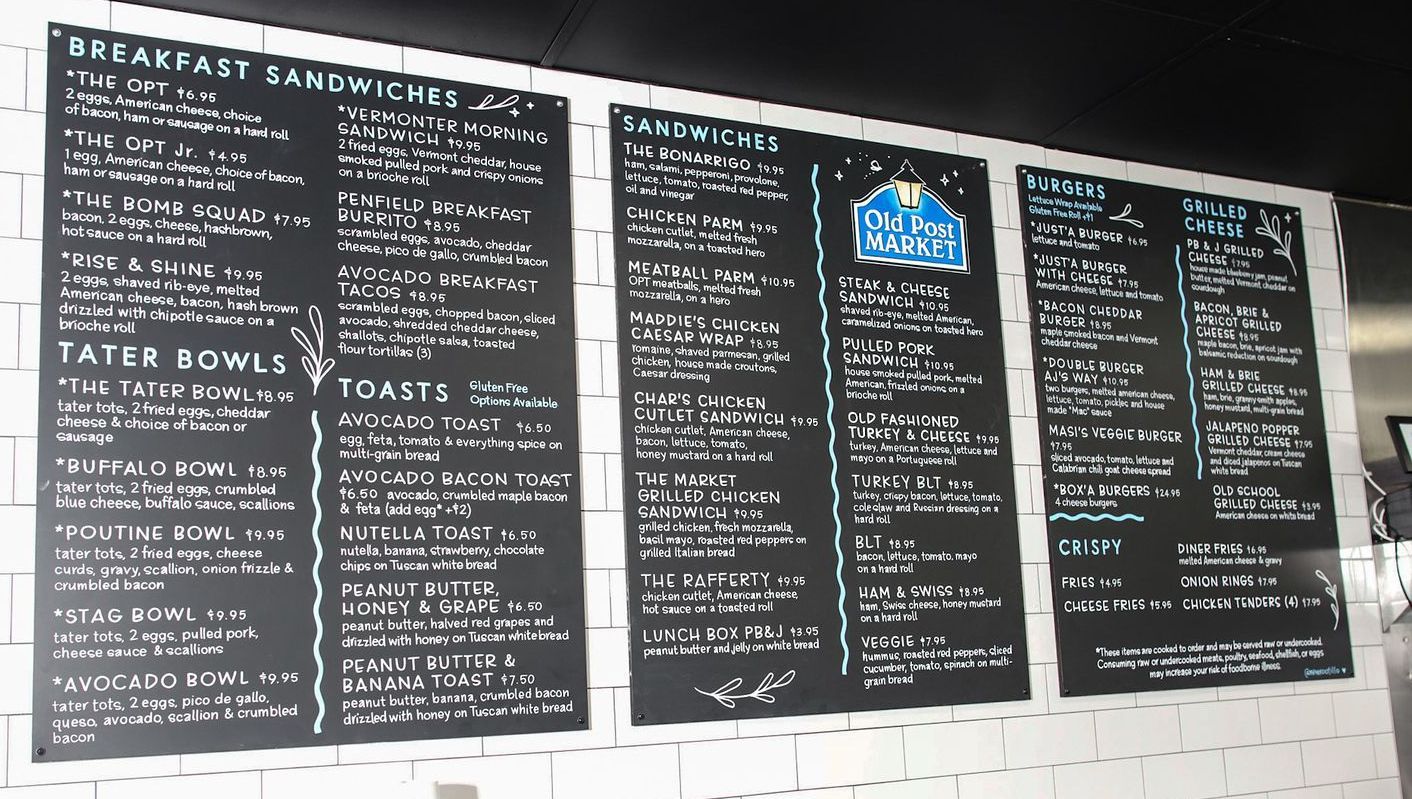 BREAKFAST SANDWICHES
*THE OPT $6.95
2 eggs, American cheese, choice
of bacon, ham or sausage on a hard roll
*THE OPT Jr. $4.95
1 egg, American cheese, choice of bacon,
ham or sausage on a hard roll
*THE BOMB SQUAD $7.95
bacon, 2 eggs, cheese, hashbrown,
hot sauce on a hard roll
*RISE & SHINE $9.95
2 eggs, shaved rib-eye, melted
American cheese, bacon, hash brown
drizzled with chipotle sauce on a
brioche roll
TATER BOWLS
*THE TATER BOWL $8.95
tater tots, 2 fried eggs, cheddar
cheese & choice of bacon or
sausage
*BUFFALO BOWL $8.95
tater tots, 2 fried eggs, crumbled
blue cheese, buffalo sauce, scallions
*POUTINE BOWL $9.95
tater tots, 2 fried eggs, cheese
curds, gravy, scallion, onion frizzle &
crumbled bacon
*STAG BOWL $9.95
tater tots, 2 eggs, pulled pork,
cheese sauce & scallions
*AVOCADO BOWL $9.95
tater tots, 2 eggs, pico de gallo,
queso, avocado, scallion & crumbled
bacon
*VERMONTER MORNING
SANDWICH $9.95
2 fried eggs, Vermont cheddar, house
smoked pulled pork and crispy onions
on a brioche roll
PENFIELD BREAKFAST
BURRITO $8.95
scrambled eggs, avocado, cheddar
cheese, pico de gallo, crumbled bacon
AVOCADO BREAKFAST
TACOS $8.95
scrambled eggs, chopped bacon, sliced
avocado, shredded cheddar cheese,
shallots, chipotle salsa, toasted
flour tortillas (3)
TOASTS
Gluten Free
Options Available
AVOCADO TOAST $6.50
egg, feta, tomato & everything spice on
multi-grain bread
AVOCADO BACON TOAST
$6.50 avocado, crumbled maple bacon
& feta (add egg* +$2)
NUTELLA TOAST $6.50
nutella, banana, strawberry, chocolate
chips on Tuscan white bread
PEANUT BUTTER,
HONEY & GRAPE $6.50
peanut butter, halved red grapes and
drizzled with honey on Tuscan white bread
PEANUT BUTTER &
BANANA TOAST $7.50
peanut butter, banana, crumbled bacon
drizzled with honey on Tuscan white bread
SANDWICHES
THE BONARRIGO $9.95
ham, salami, pepperoni, provolone,
lettuce, tomato, roasted red pepper,
oil and vinegar
CHICKEN PARM $9.95
chicken cutlet, melted fresh
mozzarella, on a toasted hero
MEATBALL PARM $10.95
OPT meatballs, melted fresh
mozzarella, on a hero
MADDIE'S CHICKEN
CAESAR WRAP $8.95
romaine, shaved parmesan, grilled
chicken, house made croutons,
Caesar dressing
CHAR'S CHICKEN
CUTLET SANDWICH $9.95
chicken cutlet, American cheese,
bacon, lettuce, tomato,
honey mustard on a hard roll
THE MARKET
GRILLED CHICKEN
SANDWICH $9.95
grilled chicken, fresh mozzarella,
basil mayo, roasted red peppers on
grilled Italian bread
THE RAFFERTY $9.95
chicken cutlet, American cheese,
hot sauce on a toasted roll
LUNCH BOX PB&J $3.95
peanut butter and jelly on white bread
Old Post
MARKET
STEAK & CHEESE
SANDWICH $10.95
shaved rib-eye, melted American,
caramelized onions on toasted hero
PULLED PORK
SANDWICH $10.95
house smoked pulled pork, melted
American, frizzled onions on a
brioche roll
OLD FASHIONED
TURKEY & CHEESE $9.95
turkey, American cheese, lettuce and
mayo on a Portuguese roll
TURKEY BLT $8.95
turkey, crispy bacon, lettuce, tomato,
coleslaw and Russian dressing on a
hard roll
BLT $8.95
bacon, lettuce, tomato, mayo
on a hard roll
HAM & SWISS $8.95
ham, Swiss cheese, honey mustard
on a hard roll
VEGGIE $7.95
hummus, roasted red peppers, sliced
cucumber, tomato, spinach on multi-
grain bread
BURGERS
Lettuce Wrap Available
Gluten Free Roll +$1
*JUST'A BURGER $6.95
lettuce and tomato
*JUST'A BURGER
WITH CHEESE $7.95
American cheese, lettuce and tomato
*BACON CHEDDAR
BURGER $8.95
maple smoked bacon and Vermont
cheddar cheese
*DOUBLE BURGER
AJ'S WAY $10.95
two burgers, melted american cheese,
lettuce, tomato, pickles and house
made "Mac" sauce
MASI'S VEGGIE BURGER
$7.95
sliced avocado, tomato, lettuce and
Calabrian chili goat cheese spread
*BOX'A BURGERS $24.95
4 cheese burgers
GRILLED
CHEESE
PB & J GRILLED
CHEESE $7.95
house made blueberry jam, peanut
butter, melted Vermont cheddar on
sourdough
BACON, BRIE &
APRICOT GRILLED
CHEESE $8.95
maple bacon, brie, apricot jam with
balsamic reduction on sourdough
HAM & BRIE
GRILLED CHEESE $8.95
ham, brie, granny smith apples,
honey mustard, multi-grain bread
JALAPENO POPPER
GRILLED CHEESE $7.95
Vermont cheddar, cream cheese
and diced jalapenos on Tuscan
white bread
OLD SCHOOL
GRILLED CHEESE $3.95
American cheese on white bread
CRISPY
FRIES $4.95
CHEESE FRIES $5.95
DINER FRIES $6.95
melted American cheese & gravy
ONION RINGS $7.95
CHICKEN TENDERS (4) $7.95
*These items are cooked to order and may be served raw or undercooked.
Consuming raw or undercooked meats, poultry, seafood, shellfish, or eggs
may increase your risk of foodborne illness.